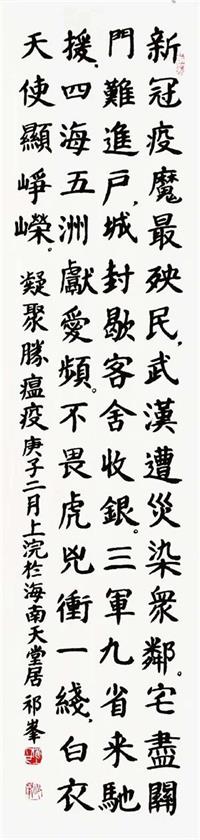 新冠疫魔最殃民,武漢遭災染衆鄰。宅盡關
門難進戶,城封歇客舍收銀。三軍九省来馳
援,四海五洲獻愛頻。不畏虎兕衝一綫,白衣
天使顯崢嶸。凝聚勝瘟疫庚子二月上浣於海南天堂居祁峯